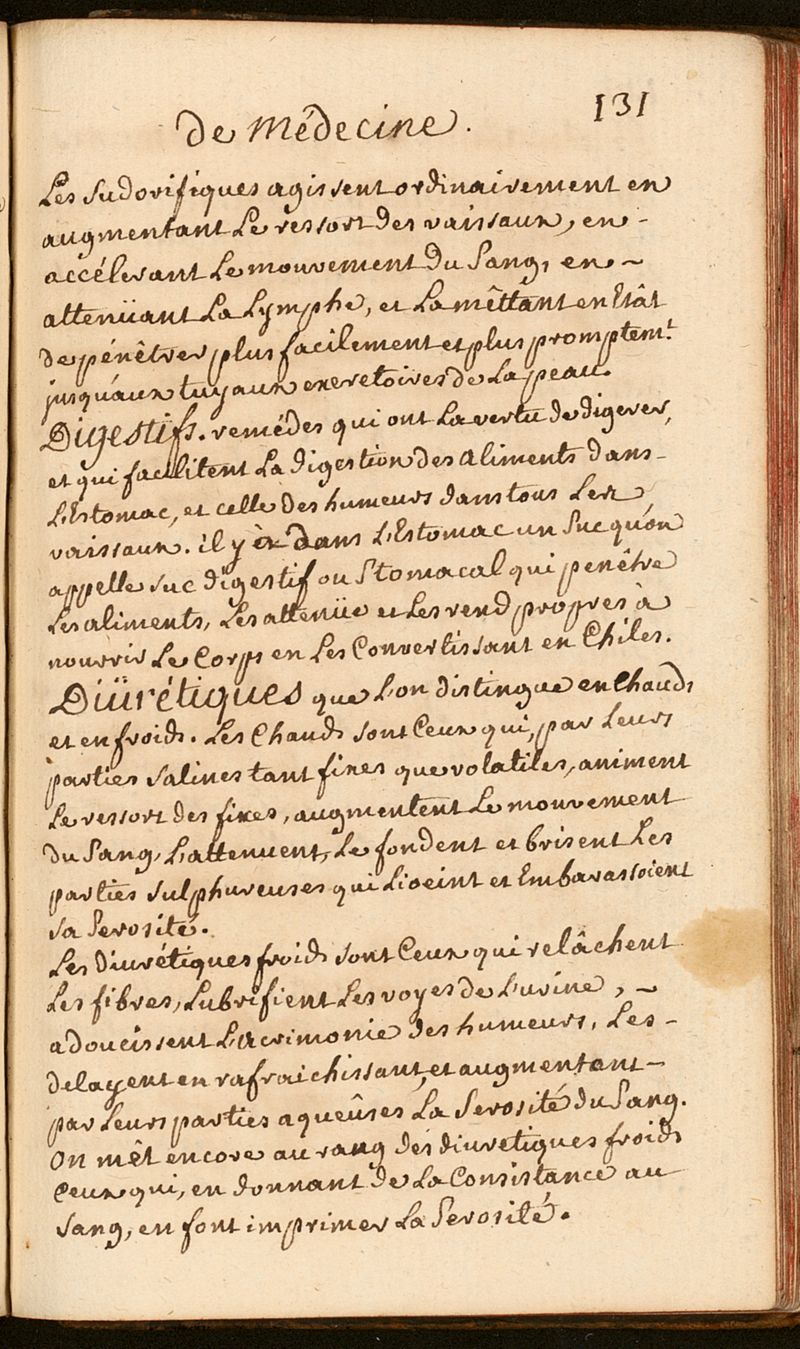 131
de Médecine.
Les Sudorifiques agissent ordinairement en
augmentant Le ressort des vaissaux, en-
accélerant Le mouvement du Sang, en-~
attenüant La Lymphe, et La mêttant en Etât
de pénêtrer plus facilement et plus promptemt.
jusqu'aux tuyaux excretoires de La peau.
Digestifs. remédes qui ont La vertu de digerer,
et qui facilitent La digestion des aliments dans-
L'Estomac, et celle des humeurs dans tous Les
vaissaux. il y à dans L'Estomac un Suc qu'on
appelle suc digestif ou Stomacal qui penêtre
Les aliments, Les attenüe et Les rend propres à
nourrir Le Corps en Les Convertissant en Chiles.
Diürétiques que L'on distingue en Chauds
et en froids. Les Chauds sont Ceux qui, par Leurs
parties salines tant fixes que volatiles, animent
Le ressort des fixes, augmentent Le mouvement
du Sang, L'attenuent, Le fondent et brisent Les
parties sulphureuses qui Lioeint et Embarassoient
sa Serosité.
Les diurétiques froids sont Ceux qui relâchent
Les fibres, Lubrifient Les voyes de L'urine, ~
adoucissent L'acrimonie des humeurs, Les-
delayent en rafraichissant, et augmentant-
par Leurs parties aqueûses La Serosité du Sang.
On mêt encore au rang des diuretiques froids
Ceux qui, en donnant de La Consistance au
Sang, en font imprimer La Serosité.